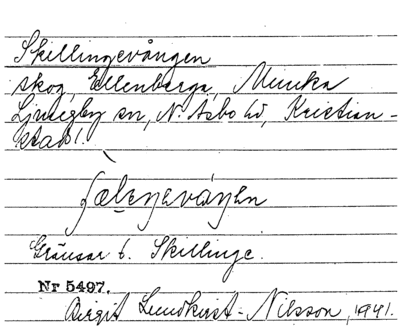 Skillingevången
skog, Ellenberga, Munka
Ljungby sn, N. Åsbo hd, Kristian-
stad l.
Gränsar t. Skillinge.
Nr 5497.
Birgit Lundkvist-Nilsson, 1941.